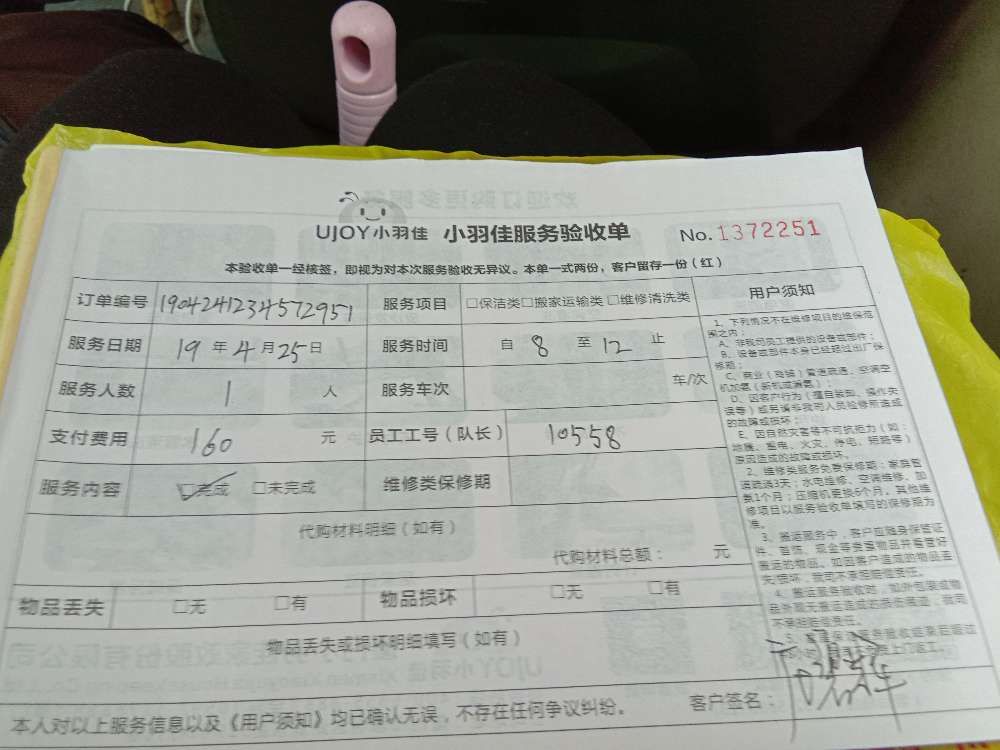 UJOY小羽佳 小羽佳服务验收单 No.1372251
本验收单一经核签，即视为对本次服务验收无异议。本单一式两份，客户留存一份（红）
订单编号 1904241234572951 服务项目 □保洁类□搬家运输类□维修清洗类
服务日期 19年4月25日 服务时间 自 8 至 12 止
服务人数 1 人 服务车次 车/次
支付费用 160 元 员工工号（队长） 10558
服务内容 □完成 □未完成 维修类保修期
代购材料明细（如有）
代购材料总额： 元
物品丢失 □无 □有 物品损坏 □无 □有
物品丢失或损坏明细填写（如有）
本人对以上服务信息以及《用户须知》均已确认无误，不存在任何争议纠纷。 客户签名：
用户须知
1、下列情况不在维修项目的维保范
围之内：
A、非我司员工提供的设备或部件；
B、设备或部件本身已经超过出厂保
修期；
C、商业（商铺）管道疏通，空调空
机加氨（新机或消氨）；
D、因客户行为（擅自装卸、操作失
误等）或另请非我司人员检修所造成
的故障或损坏；
E、因自然灾害等不可抗拒力（如：
地震、雷电、火灾、停电、短路等）
原因造成的故障或损坏。
2、维修类服务免费保修期：家庭管
道疏通3天；水电维修、空调维修、加
氨1个月；压缩机更换6个月。其他维
修项目以服务验收单填写的保修期为
准。
3、搬运服务中，客户应随身保管证
件、首饰、现金等贵重物品并看管好
搬运的物品。如因客户造成的物品丢
失/损坏，我司不承担赔偿责任。
4、搬运服务验收时，如外包装或物
品外观无搬运造成的损伤痕迹，我司
不承担赔偿责任。